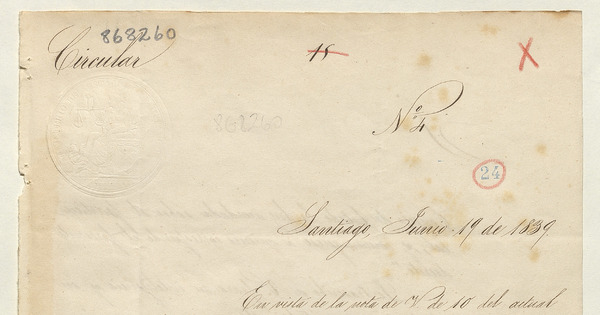 868260
Circular
18
X
868260
Nº 4
24
Santiago, Junio 19 de 1839.
En vista de la nota de V de 10 del actual